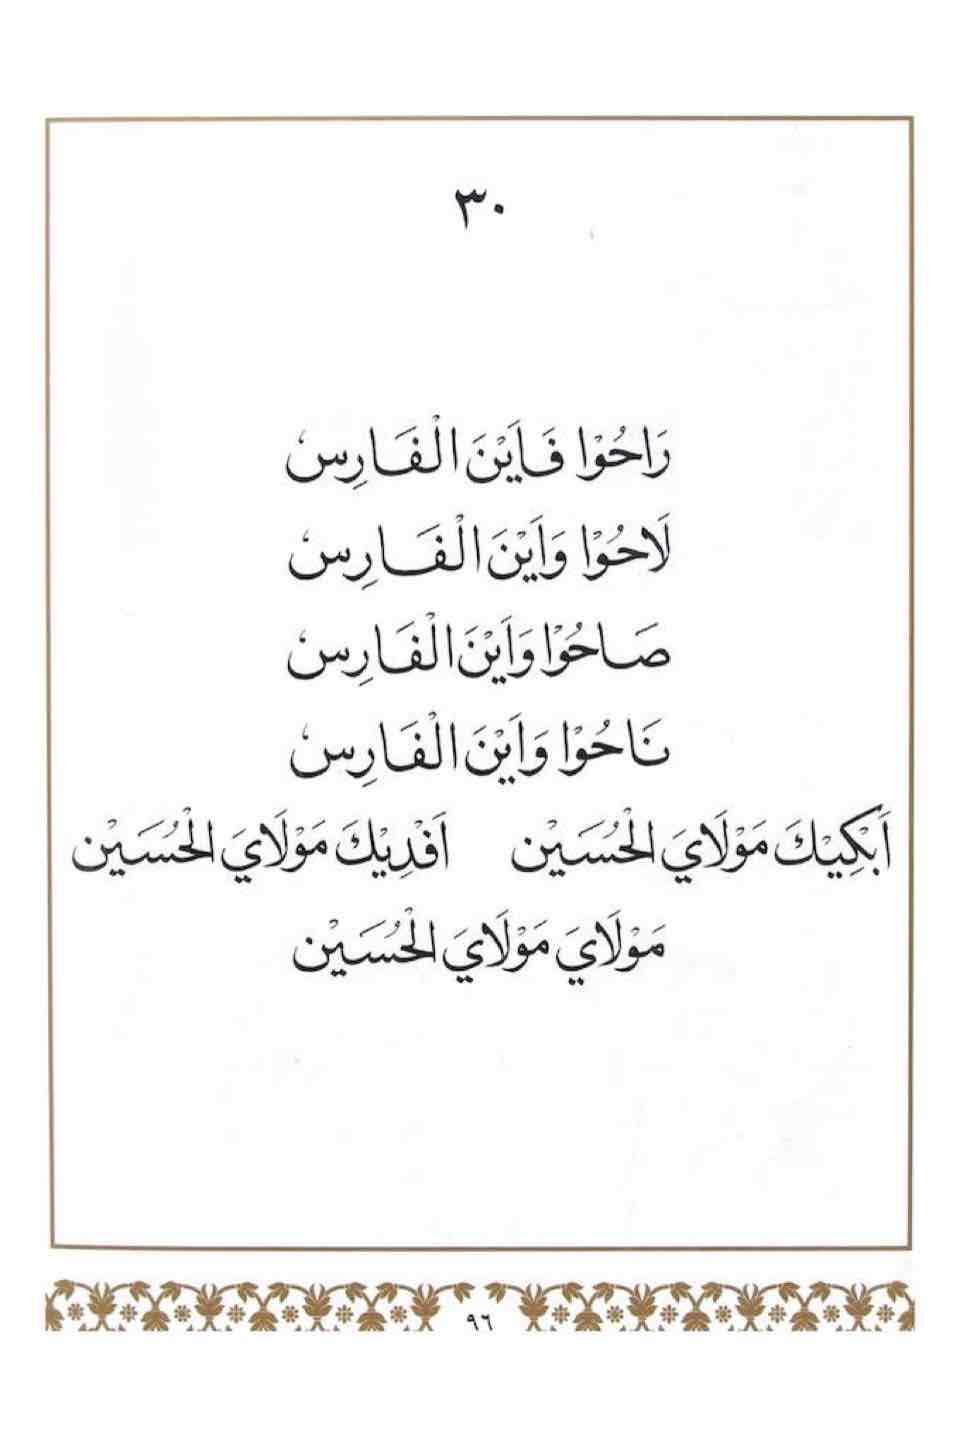 ٣٠
رَاحُوْا فَاَيْنَ الْفَارِسْ
لَاحُوْا وَاَيْنَ الْفَارِسْ
صَاحُوْا وَاَيْنَ الْفَارِسْ
نَاحُوْا وَاَيْنَ الْفَارِسْ
اَبْكِيْكَ مَوْلَايَ الْحُسَيْن اَفْدِيْكَ مَوْلَايَ الْحُسَيْن
مَوْلَايَ مَوْلَايَ الْحُسَيْن
٩٦